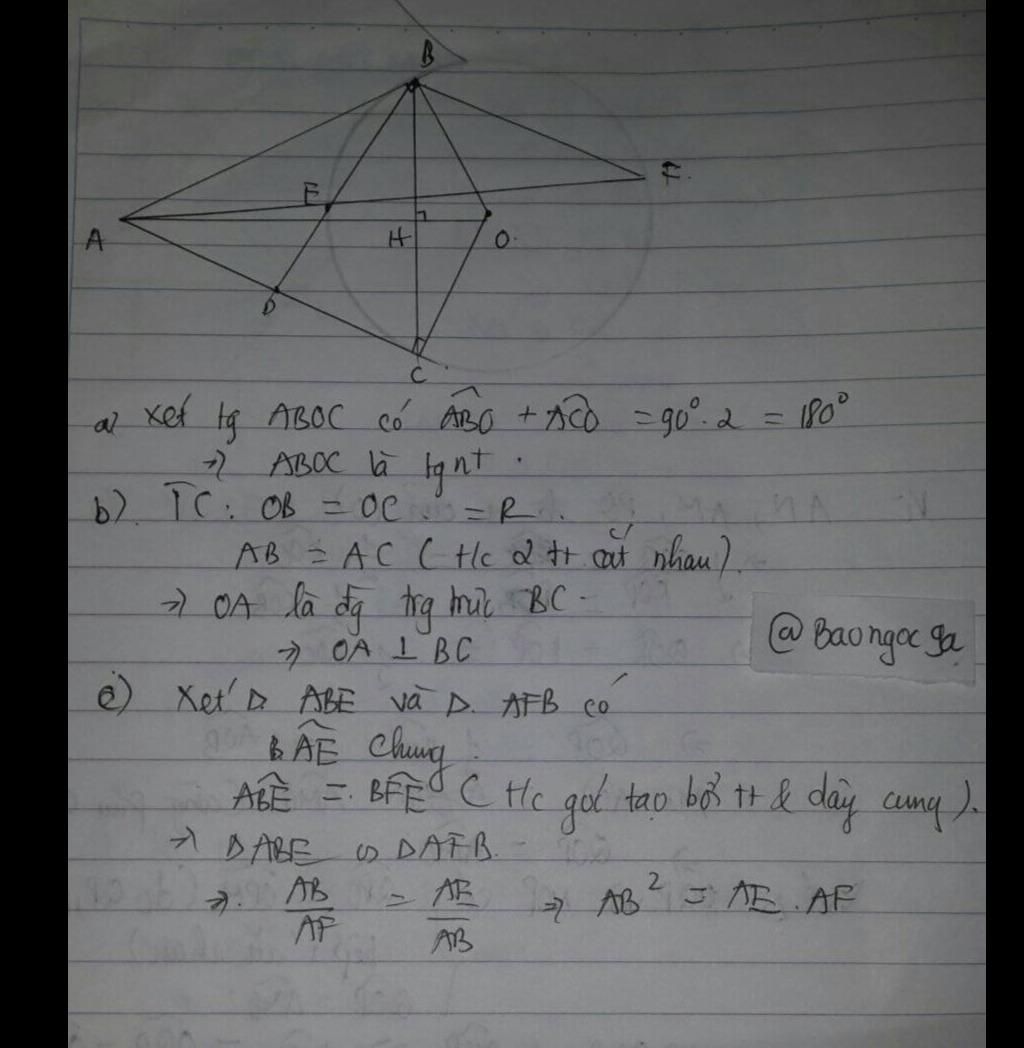 B
E
F.
A
H
O.
D
C
a) Xét tg ABOC có ABO + ACO = 90°. 2 = 180°
=> ABOC là tgnt.
b). TC: OB = OC. = R.
AB = AC ( t/c 2 tt cắt nhau).
=> OA là đg trg trực BC.
=> OA ⊥ BC
@Baongocga
c) Xét Δ ABE và Δ. AFB có
BAE chung.
ABE = BFE ( t/c góc tạo bởi tt & dây cung ).
=> ΔABE ∽ ΔAFB.
=>. AB/AF = AE/AB => AB² = AE . AF